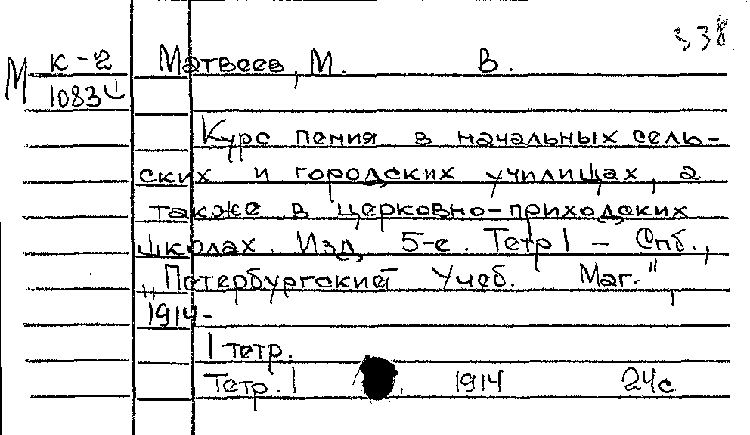 338
М К-2 Матвеев, М. В.
1083
Курс пения в начальных сель-
ских и городских училищах, а
также в церковно-приходских
школах. Изд. 5-е. Тетр 1 – Спб.,
„Петербургский Учеб. Маг.",
1914-
1 тетр.
Тетр. 1 1914 24с